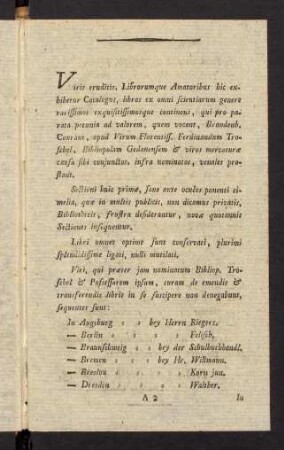 Viris eruditis, Librorumque Amatoribus hic ex-
hibetur Catalogus, libros ex omni scientiarum genere
rarissimos exquisitissimosque continens, qui pro pa-
rata pecunia ad valorem, quem vocant, Brandenb.
Courant, apud Virum Florentiss. Ferdinandum Tro-
schel, Bibliopolam Gedanensem & viros mercaturæ
causa sibi conjunctos, infra nominatos, venales pro-
stant.
Sectioni huic primæ, sane ante oculos ponenti ci-
melia, quæ in multis publicis, non dicamus privatis,
Bibliothecis, frustra desiderantur, novæ quotannis
Sectiones insequentur.
Libri omnes optime sunt conservati, plurimi
splendidissime ligati, nulli mutilati.
Viri, qui præter jam nominatum Bibliop. Tro-
schel & Possessorem ipsum, curam de emendis &
transferendis libris in se suscipere non denegabunt,
sequentes sunt:
In Augsburg : : bey Herrn Riegers.
— Berlin : : : : Felisch.
— Braunschweig : : bey der Schulbuchhandl.
— Bremen : : : bey Hr. Willmann.
— Breslau : : : : Korn jun.
— Dresden : : : : Walther.
A 2 In